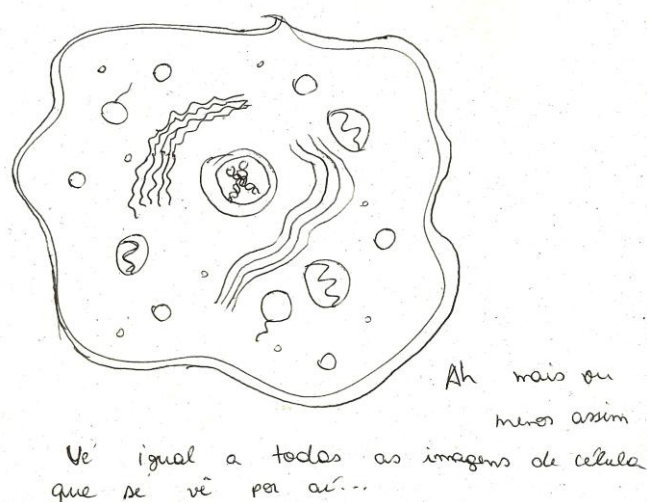 Ah mais ou
menos assim
Vê igual a todas as imagens de célula
que se vê por aí...